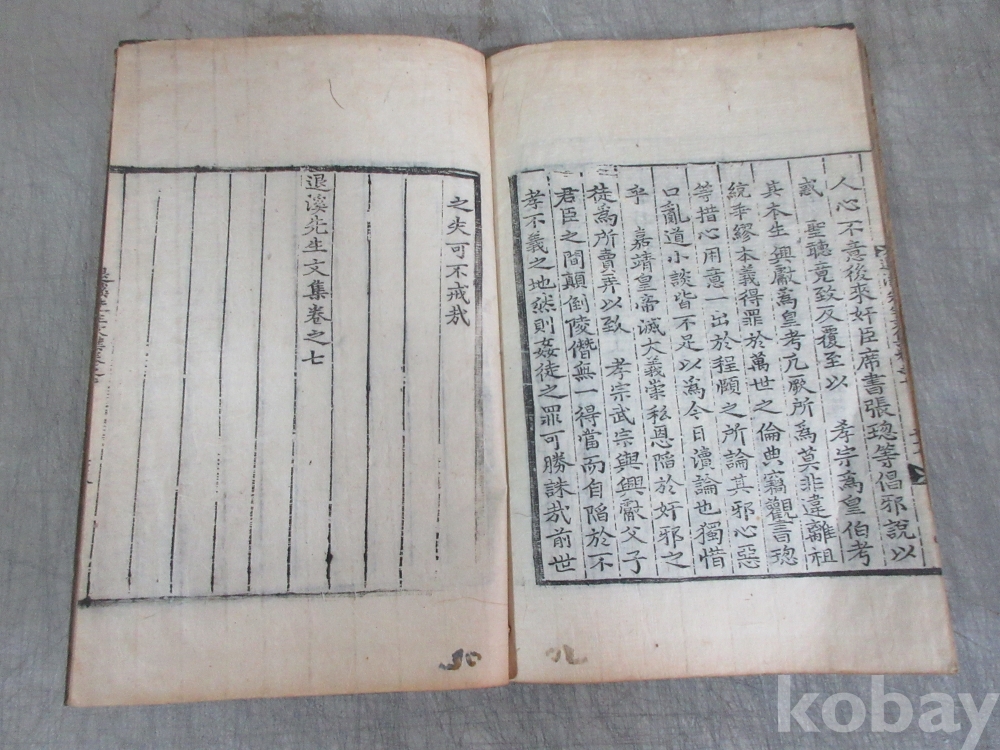 人心不意後來奸臣席書張璁等倡邪說以
惑　聖聽竟致反覆至以　孝宗爲皇伯考
其本生　興獻爲皇考凡厥所爲莫非違離祖
統乖繆本義得罪於萬世之倫典竊觀書璁
等措心用意一出於程頤之所論其邪心惡
口亂道小談皆不足以爲今日瀆論也獨惜
乎　嘉靖皇帝滅大義崇私恩陷於奸邪之
徒爲所賣弄以致　孝宗武宗與興獻父子
君臣之間顚倒陵僭無一得當而自陷於不
孝不義之地然則姦徒之罪可勝誅哉前世
之失可不戒哉
退溪先生文集卷之七
kobay